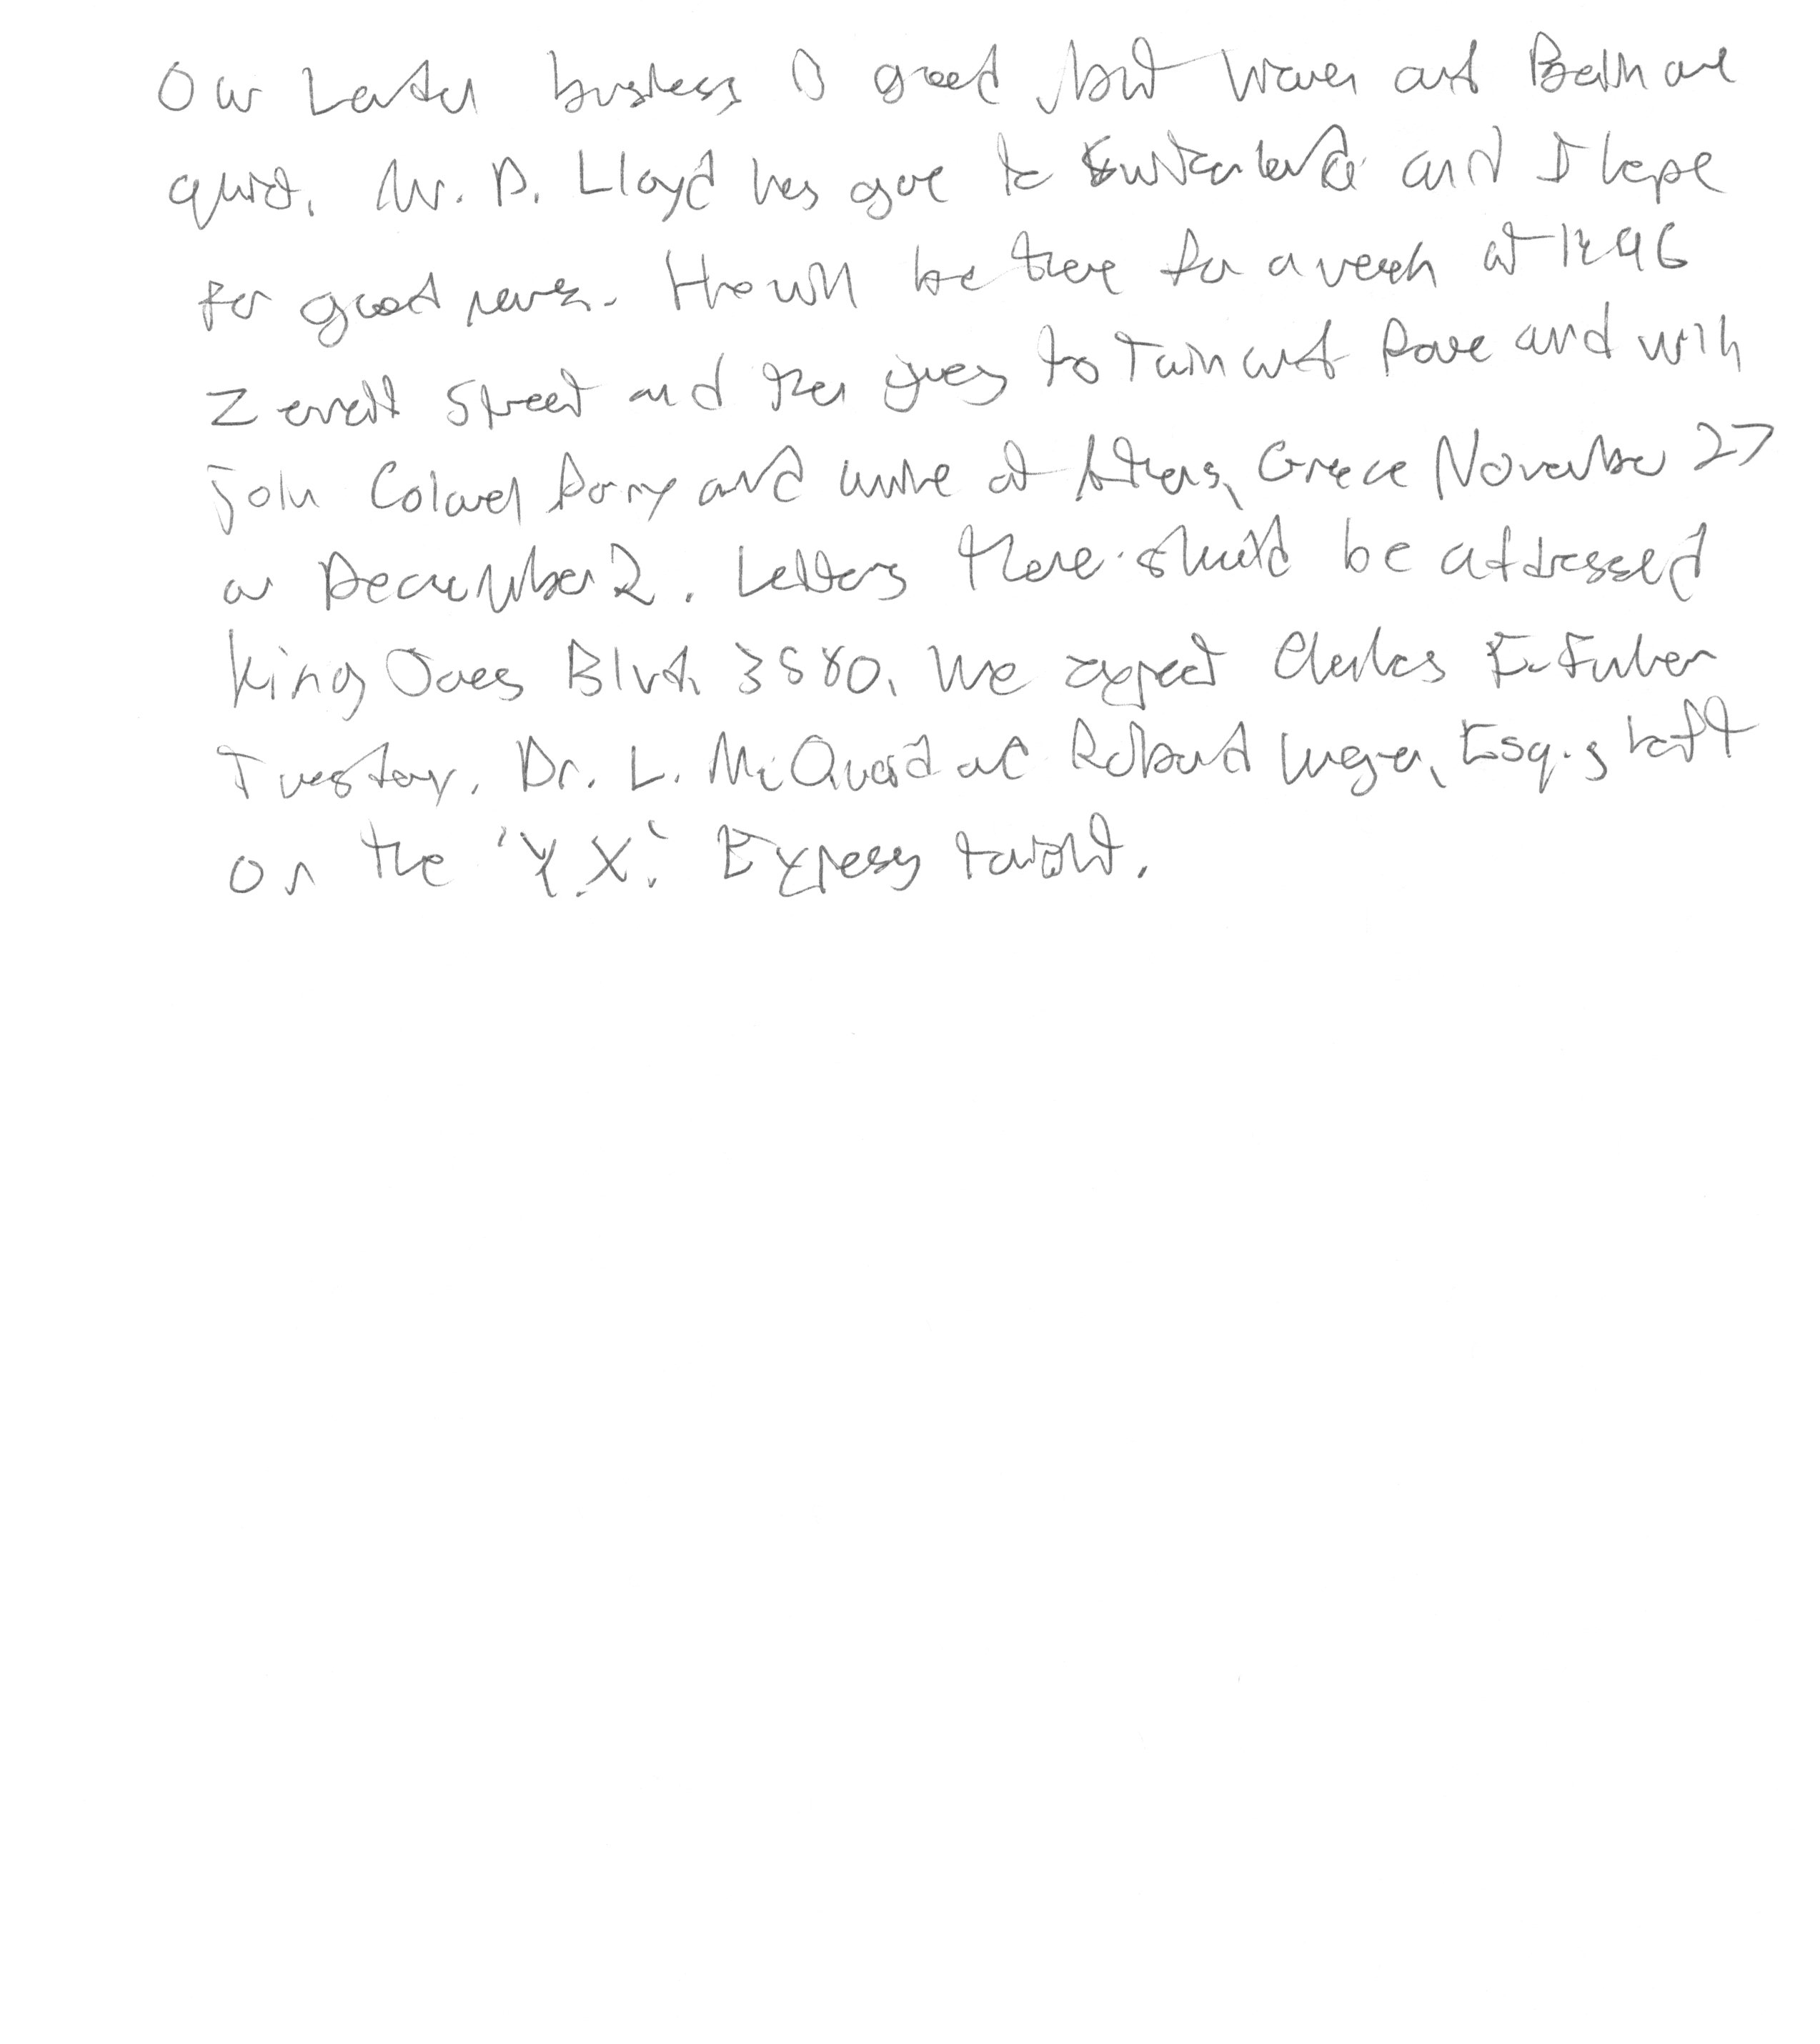 Our London business is good, but Vienna and Berlin are
quiet. Mr. D. Lloyd has gone to Switzerland and I hope
for good news. He will be there for a week at 1496
Zermott Street and then goes to Turin and Rome and will
join Colonel Parry and arrive at Athens, Greece November 27
or December 2. Letters there should be addressed
King James Blvd. 3580. We expect Charles E. Fuller
Tuesday. Dr. L. McQuaid and Robert Unger, Esq., left
on the 'Y.X.' Express tonight.